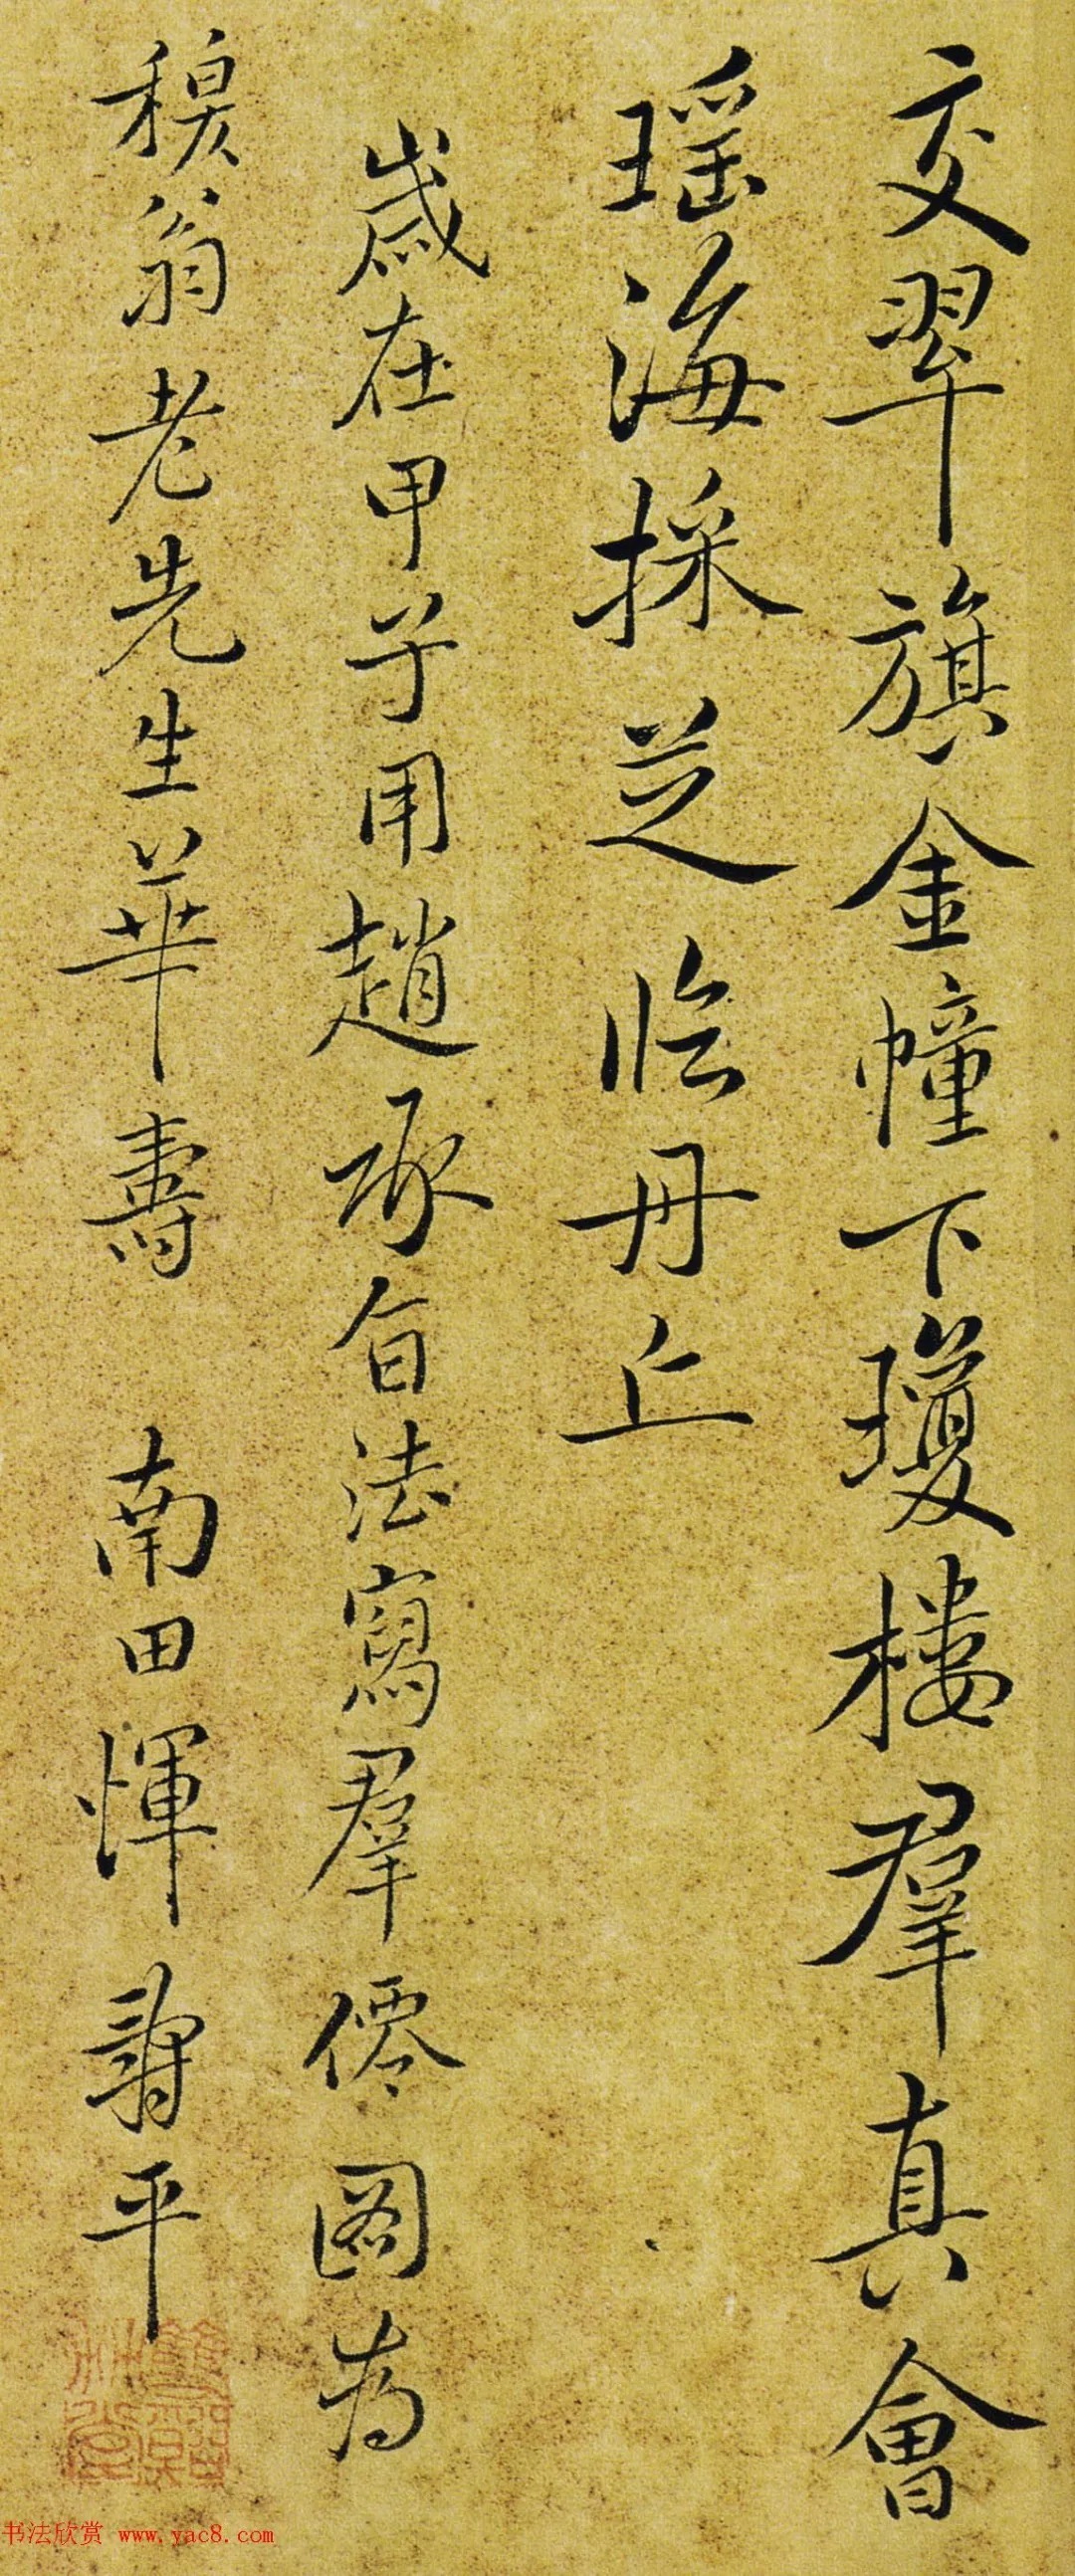 交翠旗金幢下瓊楼羣真會
瑶海採芝临丹丘
歳在甲子用趙承旨法寫羣僊圖為
翁老先生華壽 南田惲壽平
书法欣赏 www.yac8.com